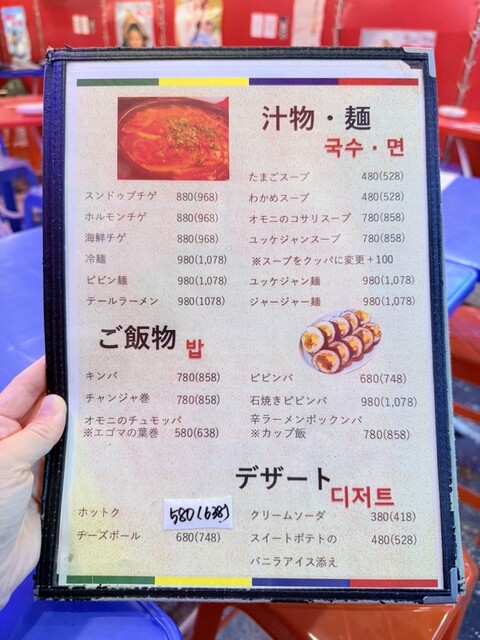 汁物・麺
국수・면
たまごスープ 480(528)
スンドゥブチゲ 880(968)
わかめスープ 480(528)
ホルモンチゲ 880(968)
オモニのコサリスープ 780(858)
海鮮チゲ 880(968)
ユッケジャンスープ 780(858)
冷麺 980(1,078)
※スープをクッパに変更+100
ビビン麺 980(1,078)
ユッケジャン麺 980(1,078)
テールラーメン 980(1078)
ジャージャー麺 980(1,078)
ご飯物 밥
キンパ 780(858)
チャンジャ巻 780(858)
オモニのチュモッパ
※エゴマの葉巻 580(638)
ビビンバ 680(748)
石焼きビビンバ 980(1,078)
辛ラーメンポックンパ
※カップ飯 780(858)
デザート
디저트
ホットク 580(638)
チーズボール 680(748)
クリームソーダ 380(418)
スイートポテトの 480(528)
バニラアイス添え